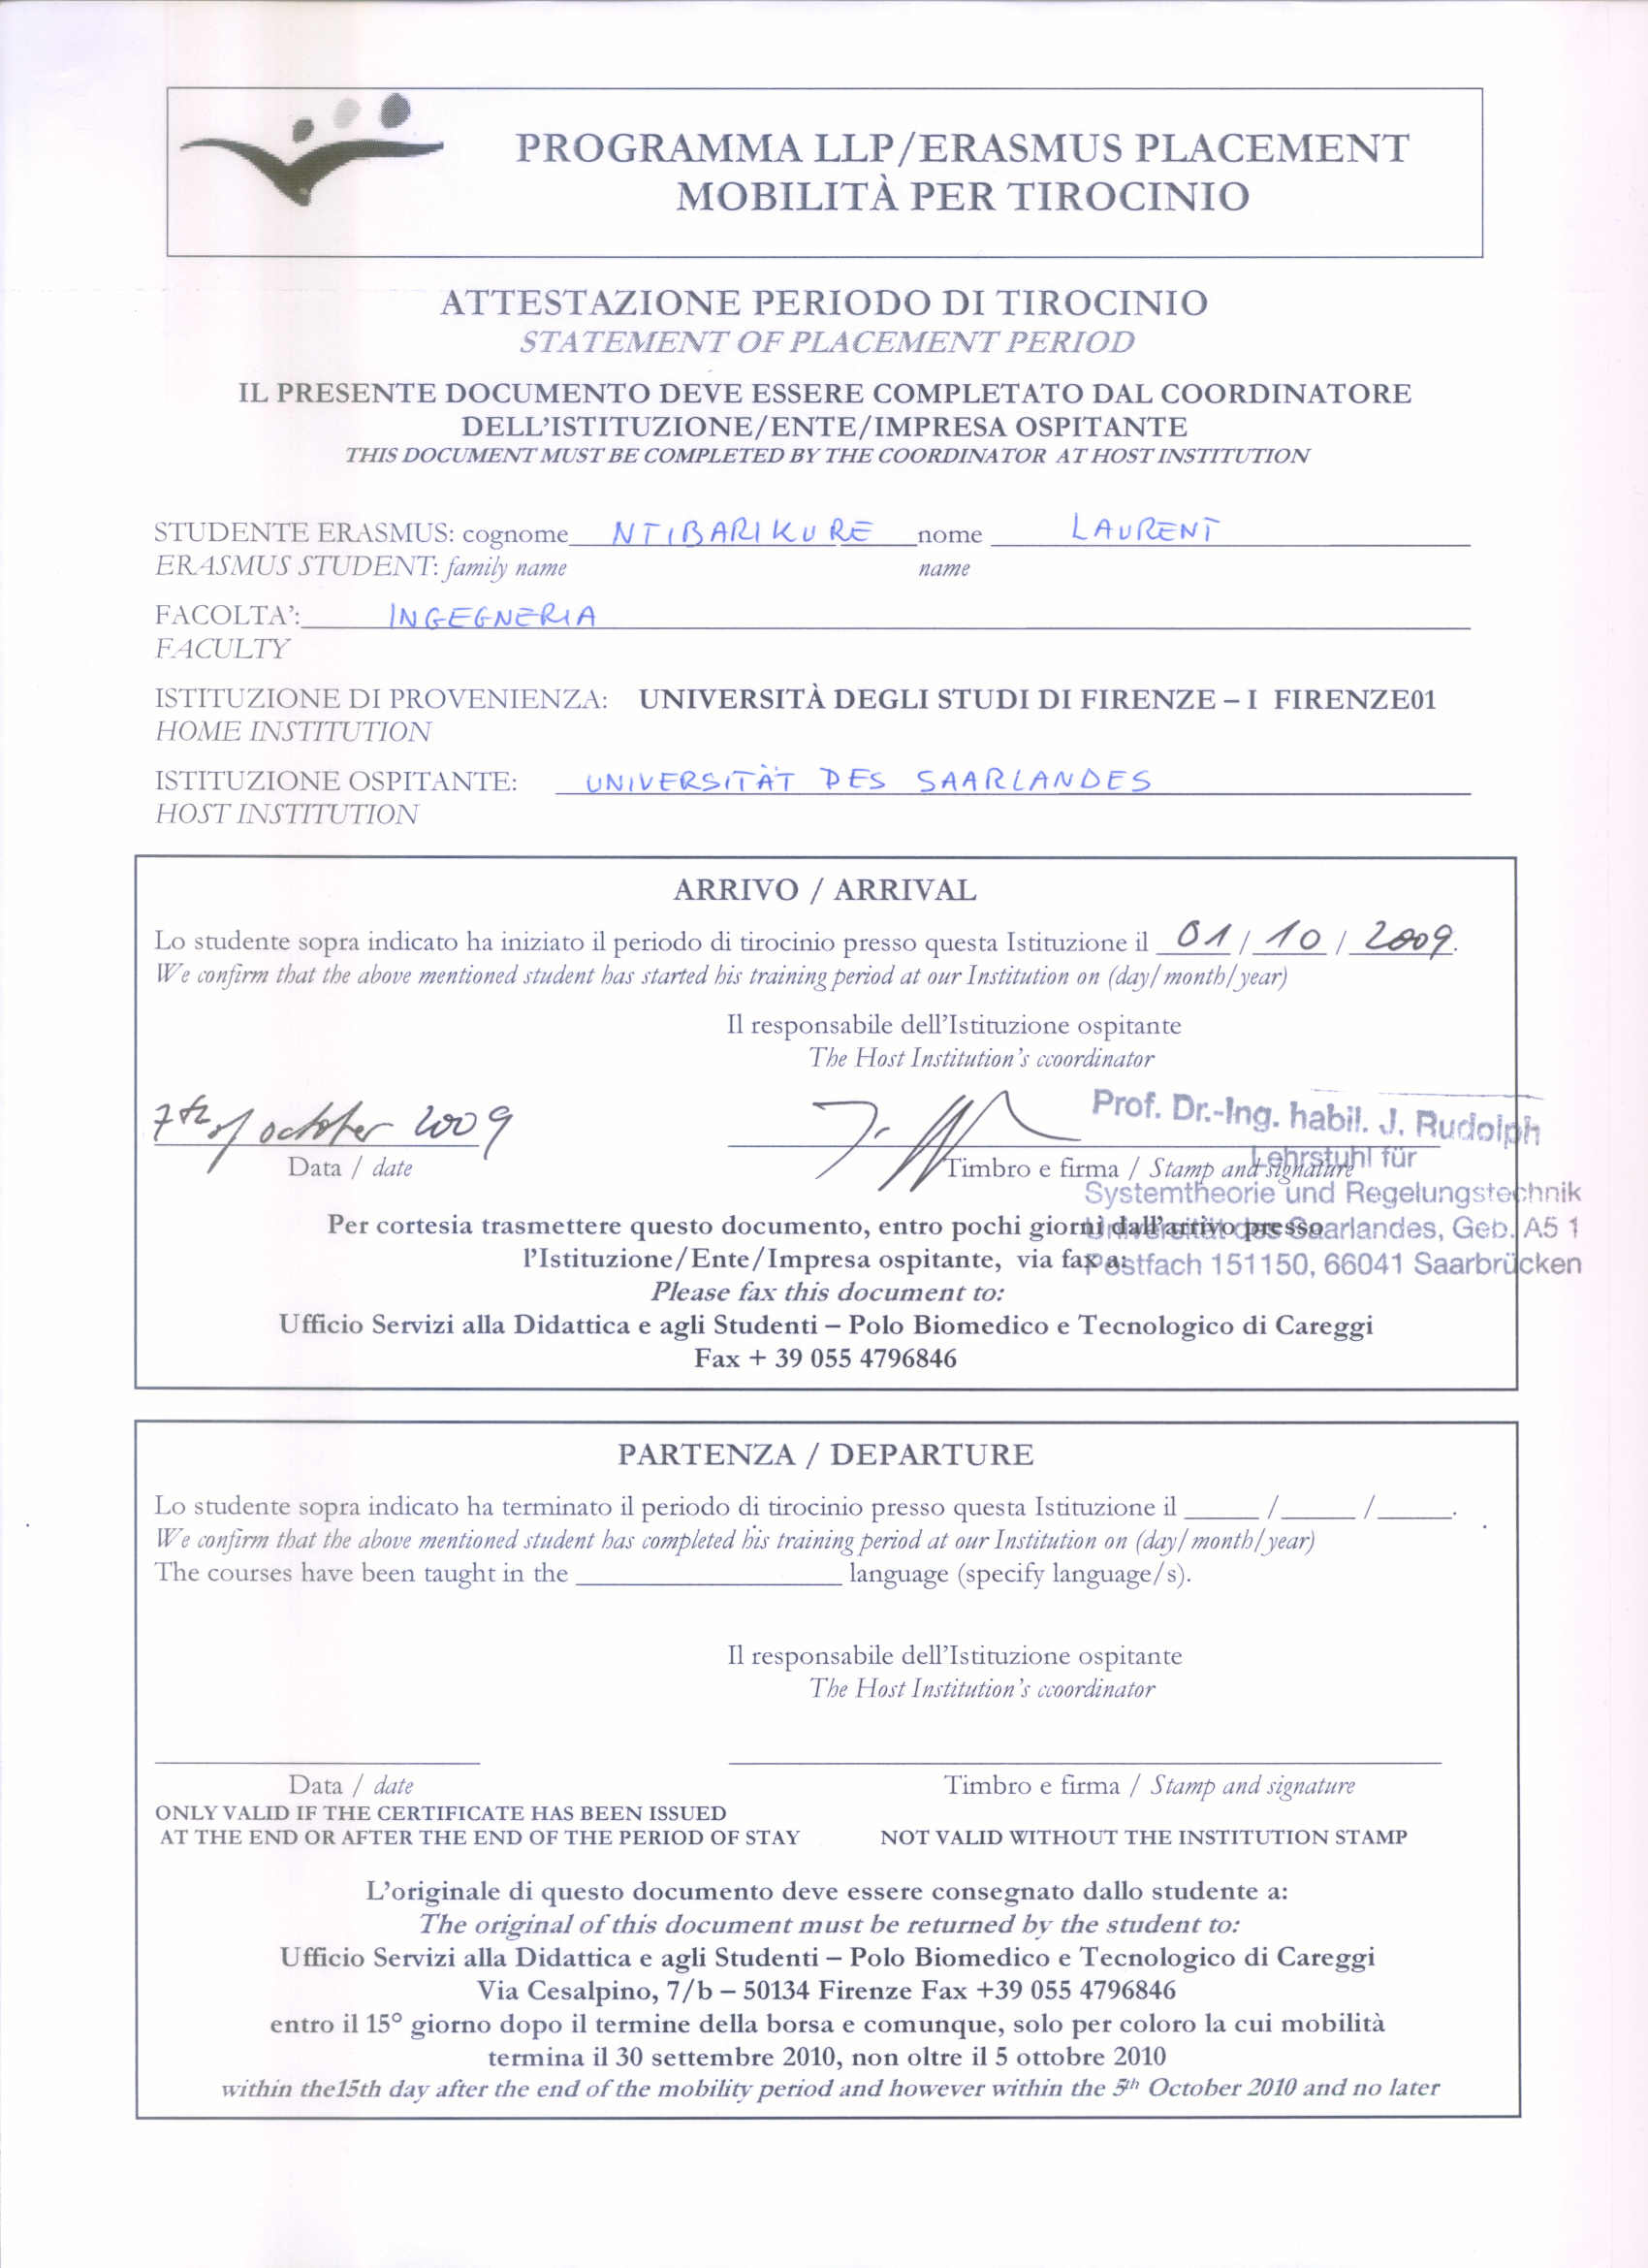 PROGRAMMA LLP/ERASMUS PLACEMENT
MOBILITÀ PER TIROCINIO
ATTESTAZIONE PERIODO DI TIROCINIO
STATEMENT OF PLACEMENT PERIOD
IL PRESENTE DOCUMENTO DEVE ESSERE COMPLETATO DAL COORDINATORE
DELL'ISTITUZIONE/ENTE/IMPRESA OSPITANTE
THIS DOCUMENT MUST BE COMPLETED BY THE COORDINATOR AT HOST INSTITUTION
STUDENTE ERASMUS: cognome NTIBARIKURE nome LAURENT
ERASMUS STUDENT: family name name
FACOLTA': INGEGNERIA
FACULTY
ISTITUZIONE DI PROVENIENZA: UNIVERSITÀ DEGLI STUDI DI FIRENZE – I FIRENZE01
HOME INSTITUTION
ISTITUZIONE OSPITANTE: UNIVERSITÄT DES SAARLANDES
HOST INSTITUTION
ARRIVO / ARRIVAL
Lo studente sopra indicato ha iniziato il periodo di tirocinio presso questa Istituzione il 01 / 10 / 2009.
We confirm that the above mentioned student has started his training period at our Institution on (day/month/year)
Il responsabile dell'Istituzione ospitante
The Host Institution's ccoordinator
7th of october 2009
Prof. Dr.-Ing. habil. J. Rudolph
Lehrstuhl für
Data / date Timbro e firma / Stamp and signature
Systemtheorie und Regelungstechnik
Universität des Saarlandes, Geb. A5 1
Postfach 151150, 66041 Saarbrücken
Per cortesia trasmettere questo documento, entro pochi giorni dall'arrivo presso
l'Istituzione/Ente/Impresa ospitante, via fax a:
Please fax this document to:
Ufficio Servizi alla Didattica e agli Studenti – Polo Biomedico e Tecnologico di Careggi
Fax + 39 055 4796846
PARTENZA / DEPARTURE
Lo studente sopra indicato ha terminato il periodo di tirocinio presso questa Istituzione il ____ /____ /____.
We confirm that the above mentioned student has completed his training period at our Institution on (day/month/year)
The courses have been taught in the ____ language (specify language/s).
Il responsabile dell'Istituzione ospitante
The Host Institution's ccoordinator
Data / date Timbro e firma / Stamp and signature
ONLY VALID IF THE CERTIFICATE HAS BEEN ISSUED
AT THE END OR AFTER THE END OF THE PERIOD OF STAY NOT VALID WITHOUT THE INSTITUTION STAMP
L'originale di questo documento deve essere consegnato dallo studente a:
The original of this document must be returned by the student to:
Ufficio Servizi alla Didattica e agli Studenti – Polo Biomedico e Tecnologico di Careggi
Via Cesalpino, 7/b – 50134 Firenze Fax +39 055 4796846
entro il 15° giorno dopo il termine della borsa e comunque, solo per coloro la cui mobilità
termina il 30 settembre 2010, non oltre il 5 ottobre 2010
within the15th day after the end of the mobility period and however within the 5th October 2010 and no later